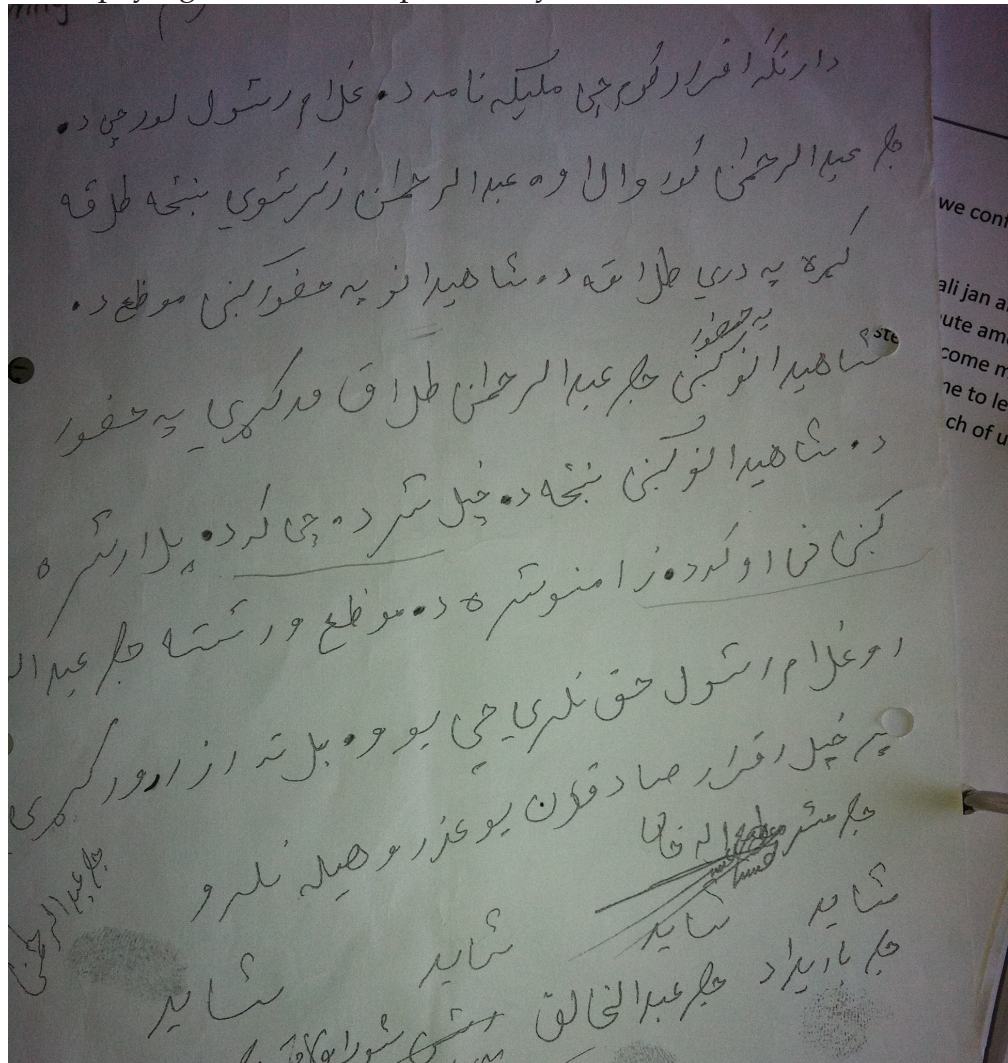 دارنګه اقرار کوم چي مليکه نامه د. غلام رسول لور چي د.
حاجي عبدالرحمن کور وال ا وه عبدالرحمن زکر شوي ښځه طلاقه
کړه په دري طلاقه د. شاهيدانو په حضور کښي موظع د.
په حضور
شاهيدانو کښي حاجي عبدالرحمن طلاق ورکړي په حضور
د. شاهيدانو کښي ښځه د. خپل شر ده چي که د. پلار شره
کښي في او که د. زامنو شره د. موظع ورسته حاجي عبدال
او غلام رسول حق نلري چي يو و. بل ته ازار ورکړي
په خپل اقرار صادق يو عذر و هيله نلرو
حاجي عبدالرحمن
شايد شايد شايد شايد
حاجي عبدالخالق
we conf
ali jan a
ute am
come m
ne to le
ch of u